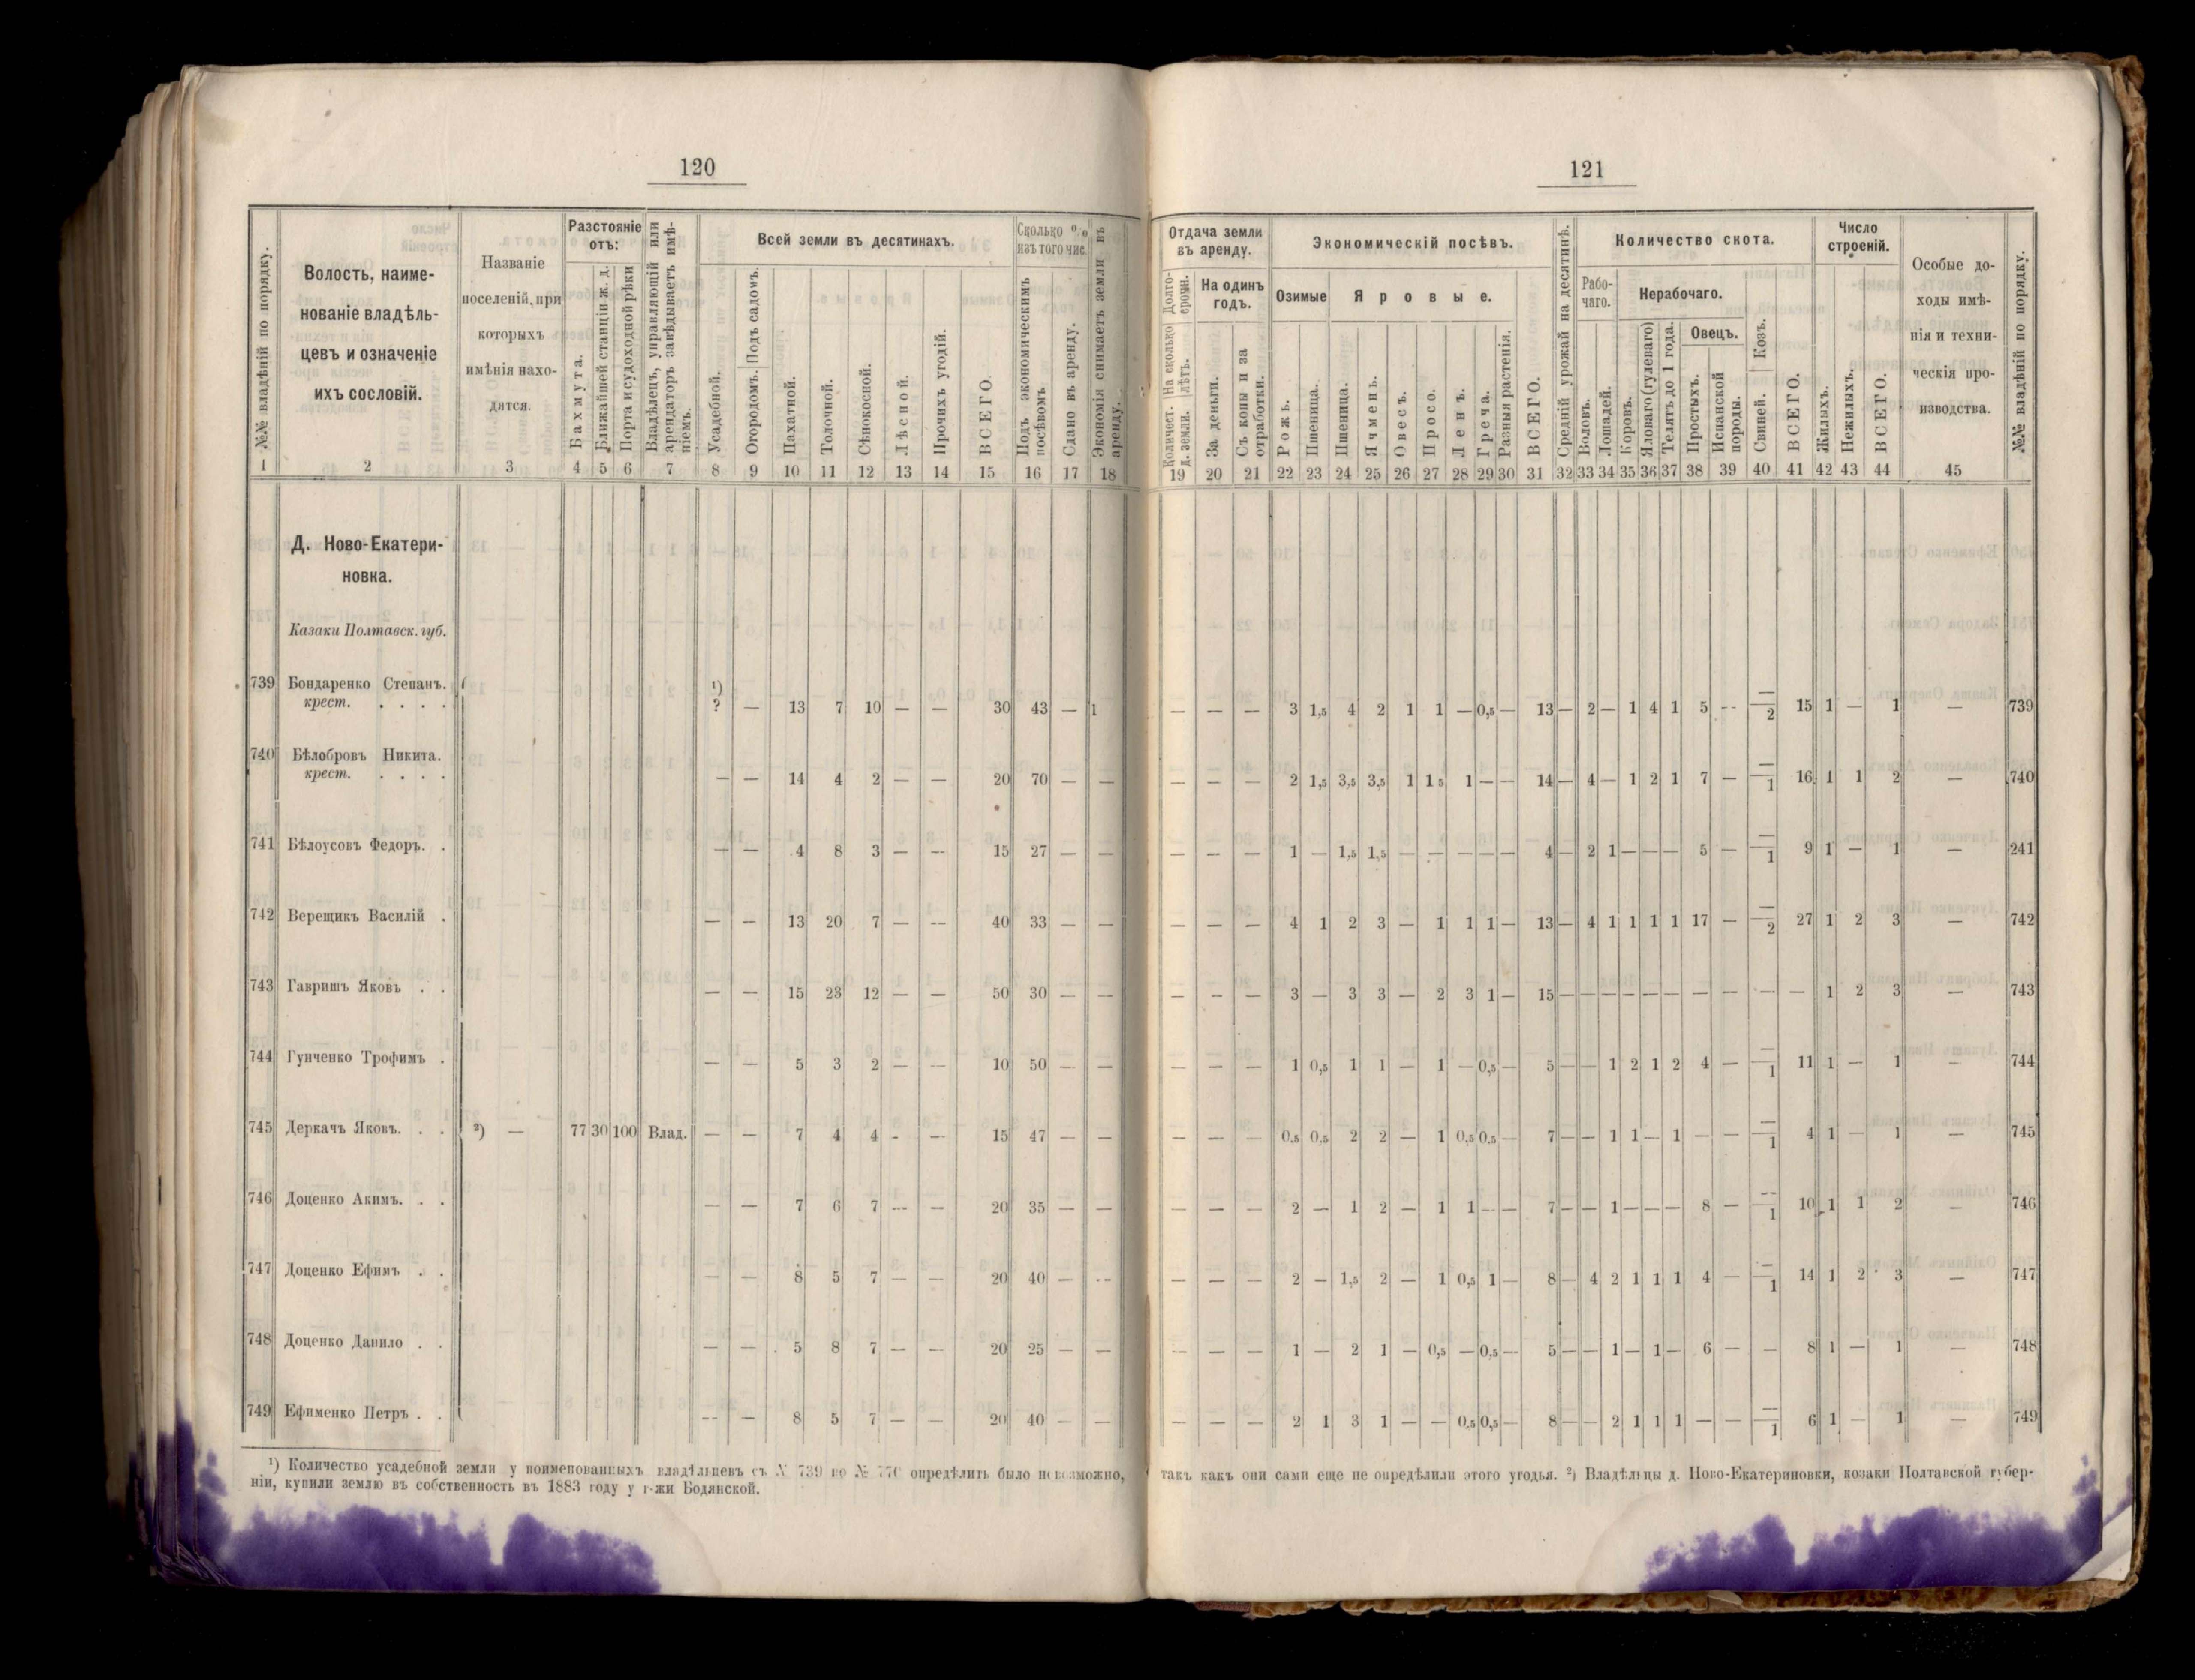 120
№№ владѣній по порядку.
Волость, наиме-
нованіе владѣль-
цевъ и означеніе
ихъ сословій.
Названіе
поселеній, при
которыхъ
имѣнія нахо-
дятся.
Разстояніе
отъ:
Бахмута.
Ближайшей станціи ж. д.
Порта и судоходной рѣки
Владѣлецъ, управляющій или
арендаторъ завѣдываетъ имѣ-
ніемъ.
Всей земли въ десятинахъ.
Усадебной.
Огородомъ. Подъ садомъ.
Пахатной.
Толочной.
Сѣнокосной.
Лѣсной.
Прочихъ угодій.
ВСЕГО.
Сколько %
изъ того чис.
Подъ экономическимъ
посѣвомъ
Сдано въ аренду.
Экономія снимаетъ земли въ
аренду.
1 2 3 4 5 6 7 8 9 10 11 12 13 14 15 16 17 18
Д. Ново-Екатери-
новка.
Казаки Полтавск. губ.
739 Бондаренко Степанъ.
крест. . . . . ¹) ? — 13 7 10 — — 30 43 — 1
740 Бѣлобровъ Никита.
крест. . . . . — — 14 4 2 — — 20 70 — —
741 Бѣлоусовъ Федоръ. . — — 4 8 3 — — 15 27 — —
742 Верещикъ Василій . — — 13 20 7 — — 40 33 — —
743 Гавришъ Яковъ . . — — 15 23 12 — — 50 30 — —
744 Гунченко Трофимъ . — — 5 3 2 — — 10 50 — —
745 Деркачъ Яковъ. . . ²) — 77 30 100 Влад. — — 7 4 4 - — 15 47 — —
746 Доценко Акимъ. . . — — 7 6 7 — — 20 35 — —
747 Доценко Ефимъ . . — — 8 5 7 — — 20 40 — —
748 Доценко Данило . . — — 5 8 7 — — 20 25 — —
749 Ефименко Петръ . . — — 8 5 7 — — 20 40 — —
¹) Количество усадебной земли у поименованныхъ владѣльцевъ съ № 739 по № 770 опредѣлить было невозможно,
ніи, купили землю въ собственность въ 1883 году у г-жи Бодянской.
121
Отдача земли
въ аренду.
Долго-
срочн.
На сколько
лѣтъ.
Количест.
д. земли.
На одинъ
годъ.
За деньги.
Съ копы и за
отработки.
Экономическій посѣвъ.
Озимые
Яровые.
Рожь.
Пшеница.
Пшеница.
Ячмень.
Овесъ.
Просо.
Ленъ.
Греча.
Разныя растенія.
ВСЕГО.
Средній урожай на десятинѣ.
Количество скота.
Рабо-
чаго.
Нерабочаго.
Воловъ.
Лошадей.
Коровъ.
Яловаго (гулеваго)
Телятъ до 1 года.
Овецъ.
Простыхъ.
Испанской
породы.
Свиней. Козъ.
ВСЕГО.
Число
строеній.
Жилыхъ.
Нежилыхъ.
ВСЕГО.
Особые до-
ходы имѣ-
нія и техни-
ческія про-
изводства.
№№ владѣній по порядку.
19 20 21 22 23 24 25 26 27 28 29 30 31 32 33 34 35 36 37 38 39 40 41 42 43 44 45
— — — 3 1,5 4 2 1 1 — 0,5 — 13 — 2 — 1 4 1 5 - - —/2 15 1 — 1 — 739
— — — 2 1,5 3,5 3,5 1 1 5 1 — — 14 — 4 — 1 2 1 7 — —/1 16 1 1 2 — 740
— — — 1 — 1,5 1,5 — — — — — 4 — 2 1 — — — 5 — —/1 9 1 — 1 — 241
— — — 4 1 2 3 — 1 1 1 — 13 — 4 1 1 1 1 17 — —/2 27 1 2 3 — 742
— — — 3 — 3 3 — 2 3 1 — 15 — — — — — — — — — — 1 2 3 — 743
— — — 1 0,5 1 1 — 1 — 0,5 — 5 — — 1 2 1 2 4 — —/1 11 1 — 1 — 744
— — — 0,5 0,5 2 2 — 1 0,5 0,5 — 7 — — 1 1 — 1 — — —/1 4 1 — 1 — 745
— — — 2 — 1 2 — 1 1 — — 7 — — 1 — — — 8 — —/1 10 1 1 2 — 746
— — — 2 — 1,5 2 — 1 0,5 1 — 8 — 4 2 1 1 1 4 — —/1 14 1 2 3 — 747
— — — 1 — 2 1 — 0,5 — 0,5 — 5 — — 1 — 1 — 6 — — 8 1 — 1 — 748
— — — 2 1 3 1 — — 0,5 0,5 — 8 — — 2 1 1 1 — — —/1 6 1 — 1 — 749
такъ какъ они сами еще не опредѣлили этого угодья. ²) Владѣльцы д. Ново-Екатериновки, козаки Полтавской губер-